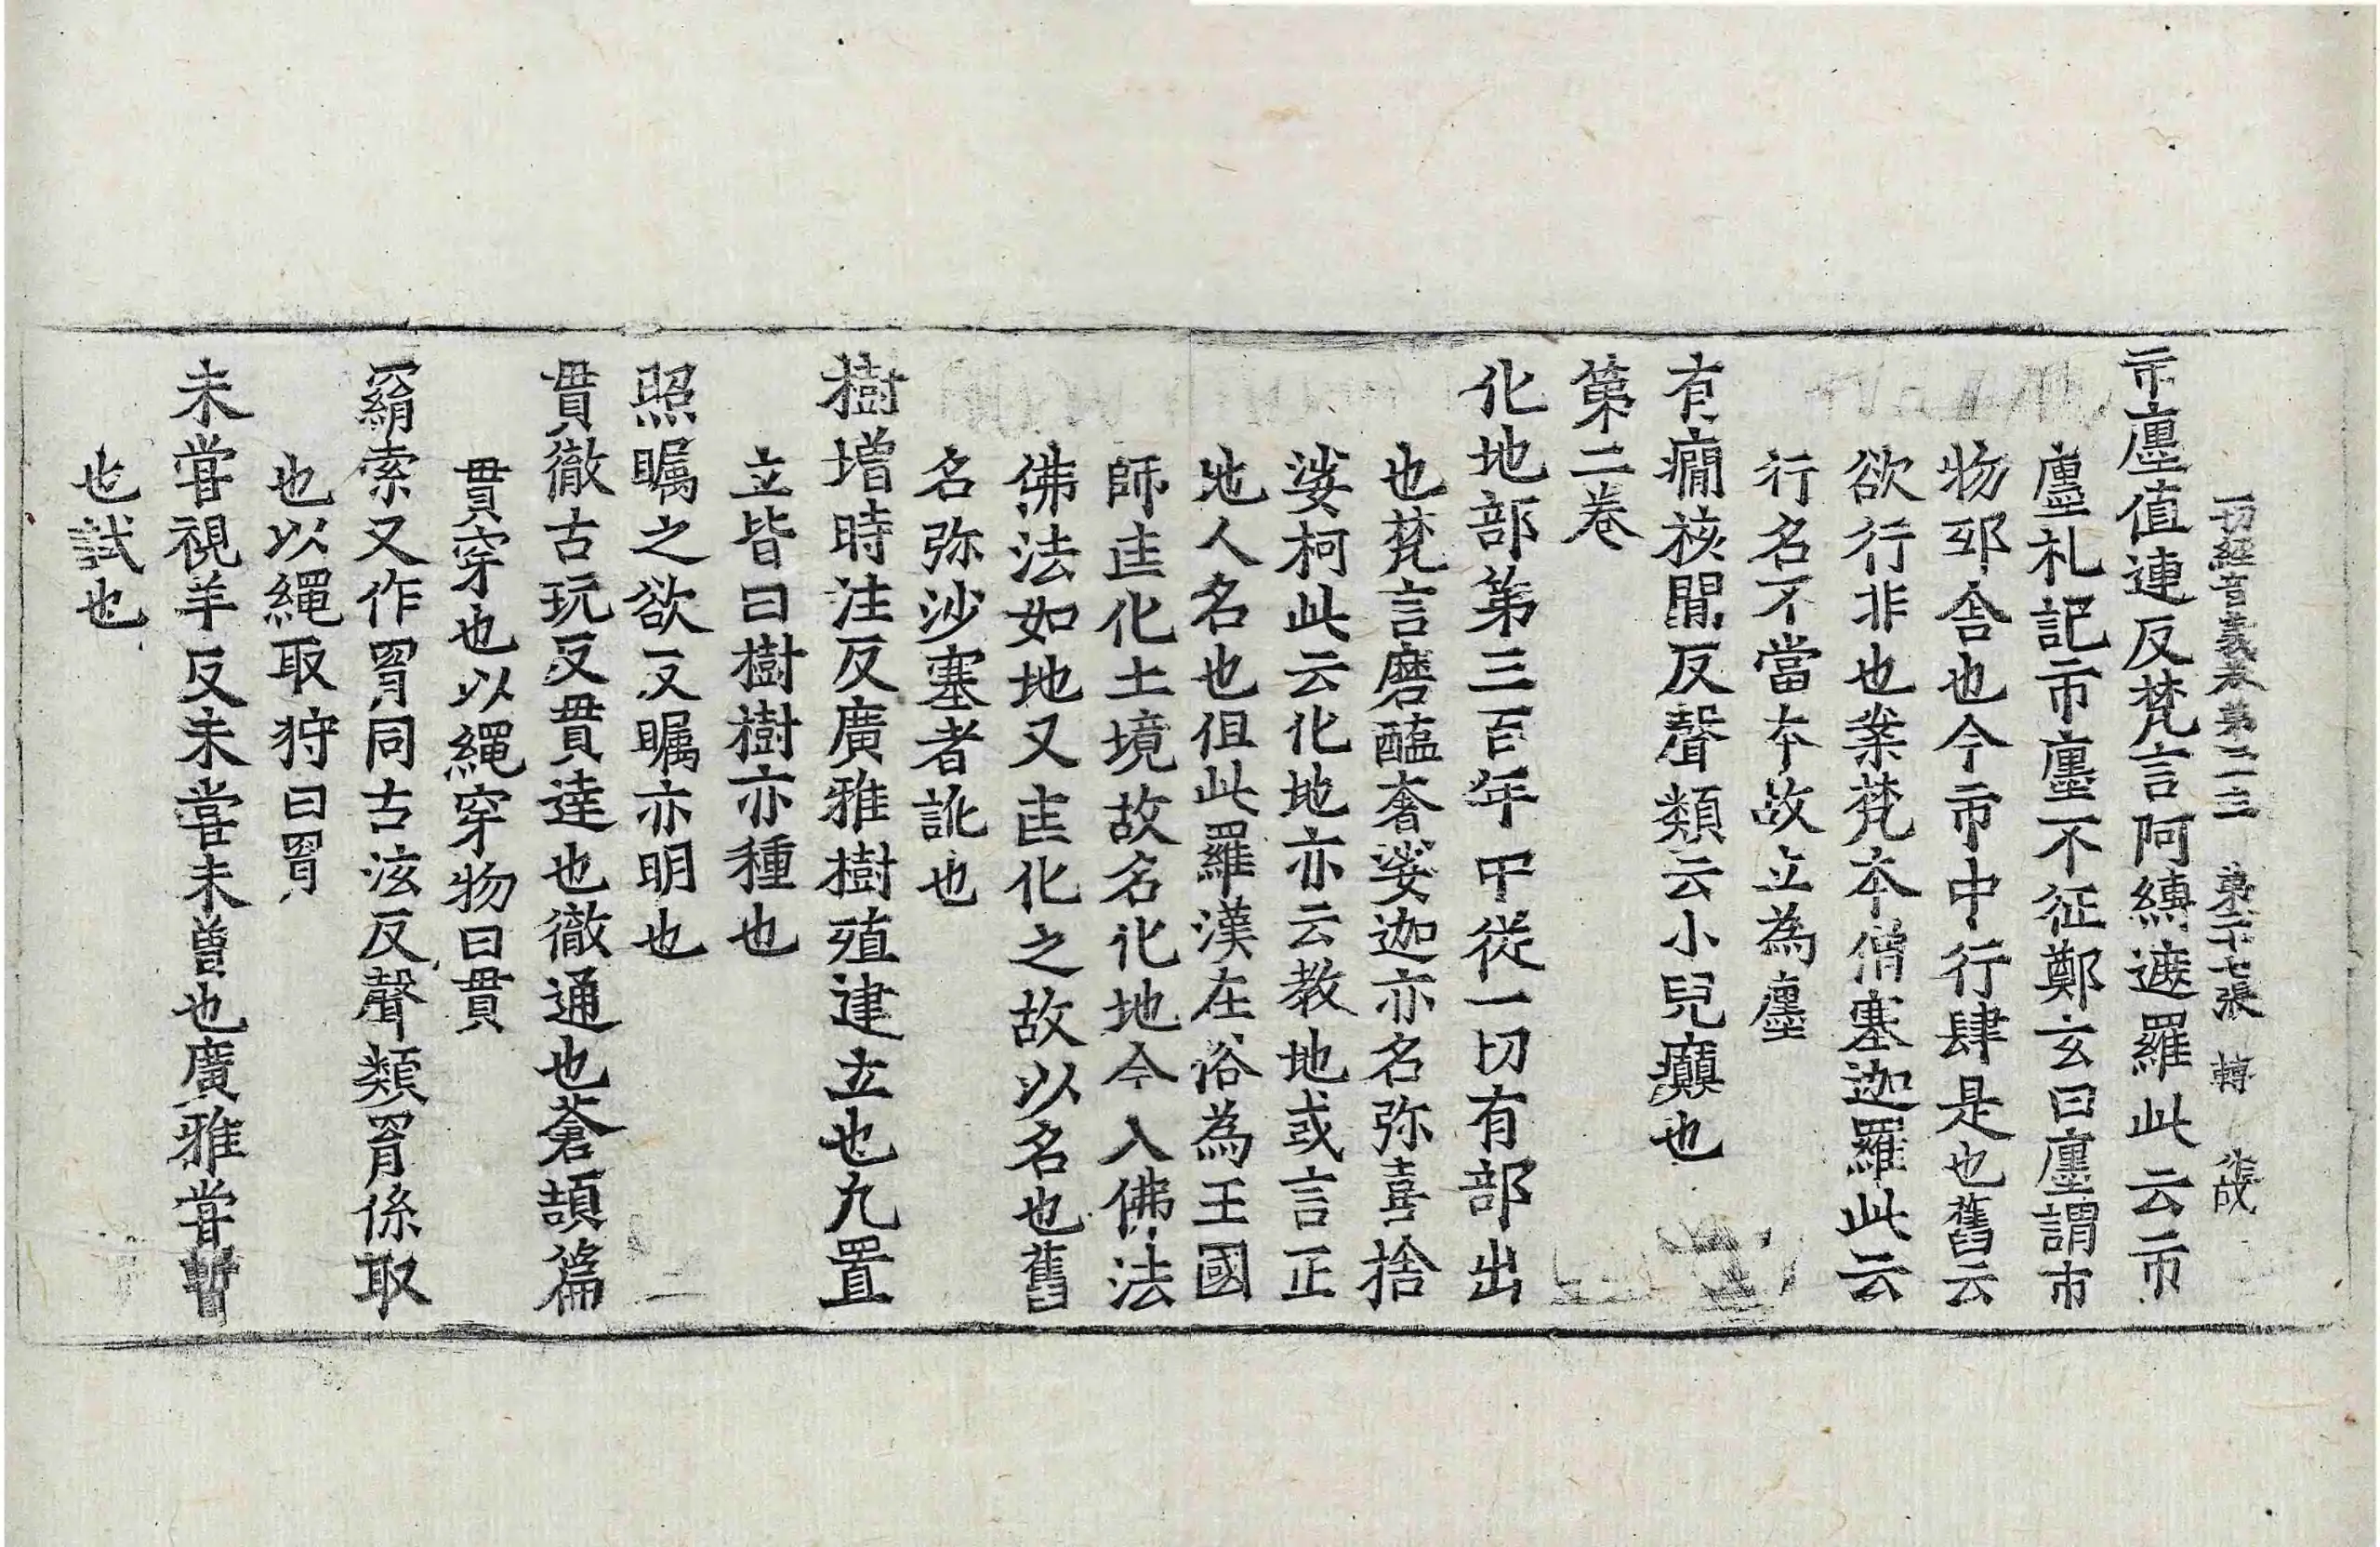 一切經音義卷第二十三 第二十七張 轉
市㕓值連反梵言阿縛遮羅此云市
㕓礼記市㕓不征鄭玄曰㕓謂市
物邸舎也今市中行肆是也舊云
欲行非也業梵本僧塞迦羅此云
行名不當本故立為㕓
有癎核閒反聲類云小兒癲也
第二卷
化地部第三百年中從一切有部出
也梵言磨醯奢娑迦亦名弥喜捨
娑柯此云化地亦云教地或言正
地人名也但此羅漢在俗為王國
師匡化土境故名化地今入佛法
佛法如地又匡化之故以名也舊
名弥沙塞者訛也
樹增時注反廣雅樹殖建立也凡置
立皆曰樹樹亦種也
照矚之欲反矚亦明也
貫徹古玩反貫達也徹通也蒼頡篇
貫穿也以繩穿物曰貫
羂索又作罥同古泫反聲類罥係取
也以繩取狩曰罥
未嘗視羊反未嘗未曽也廣雅嘗暫
也試也